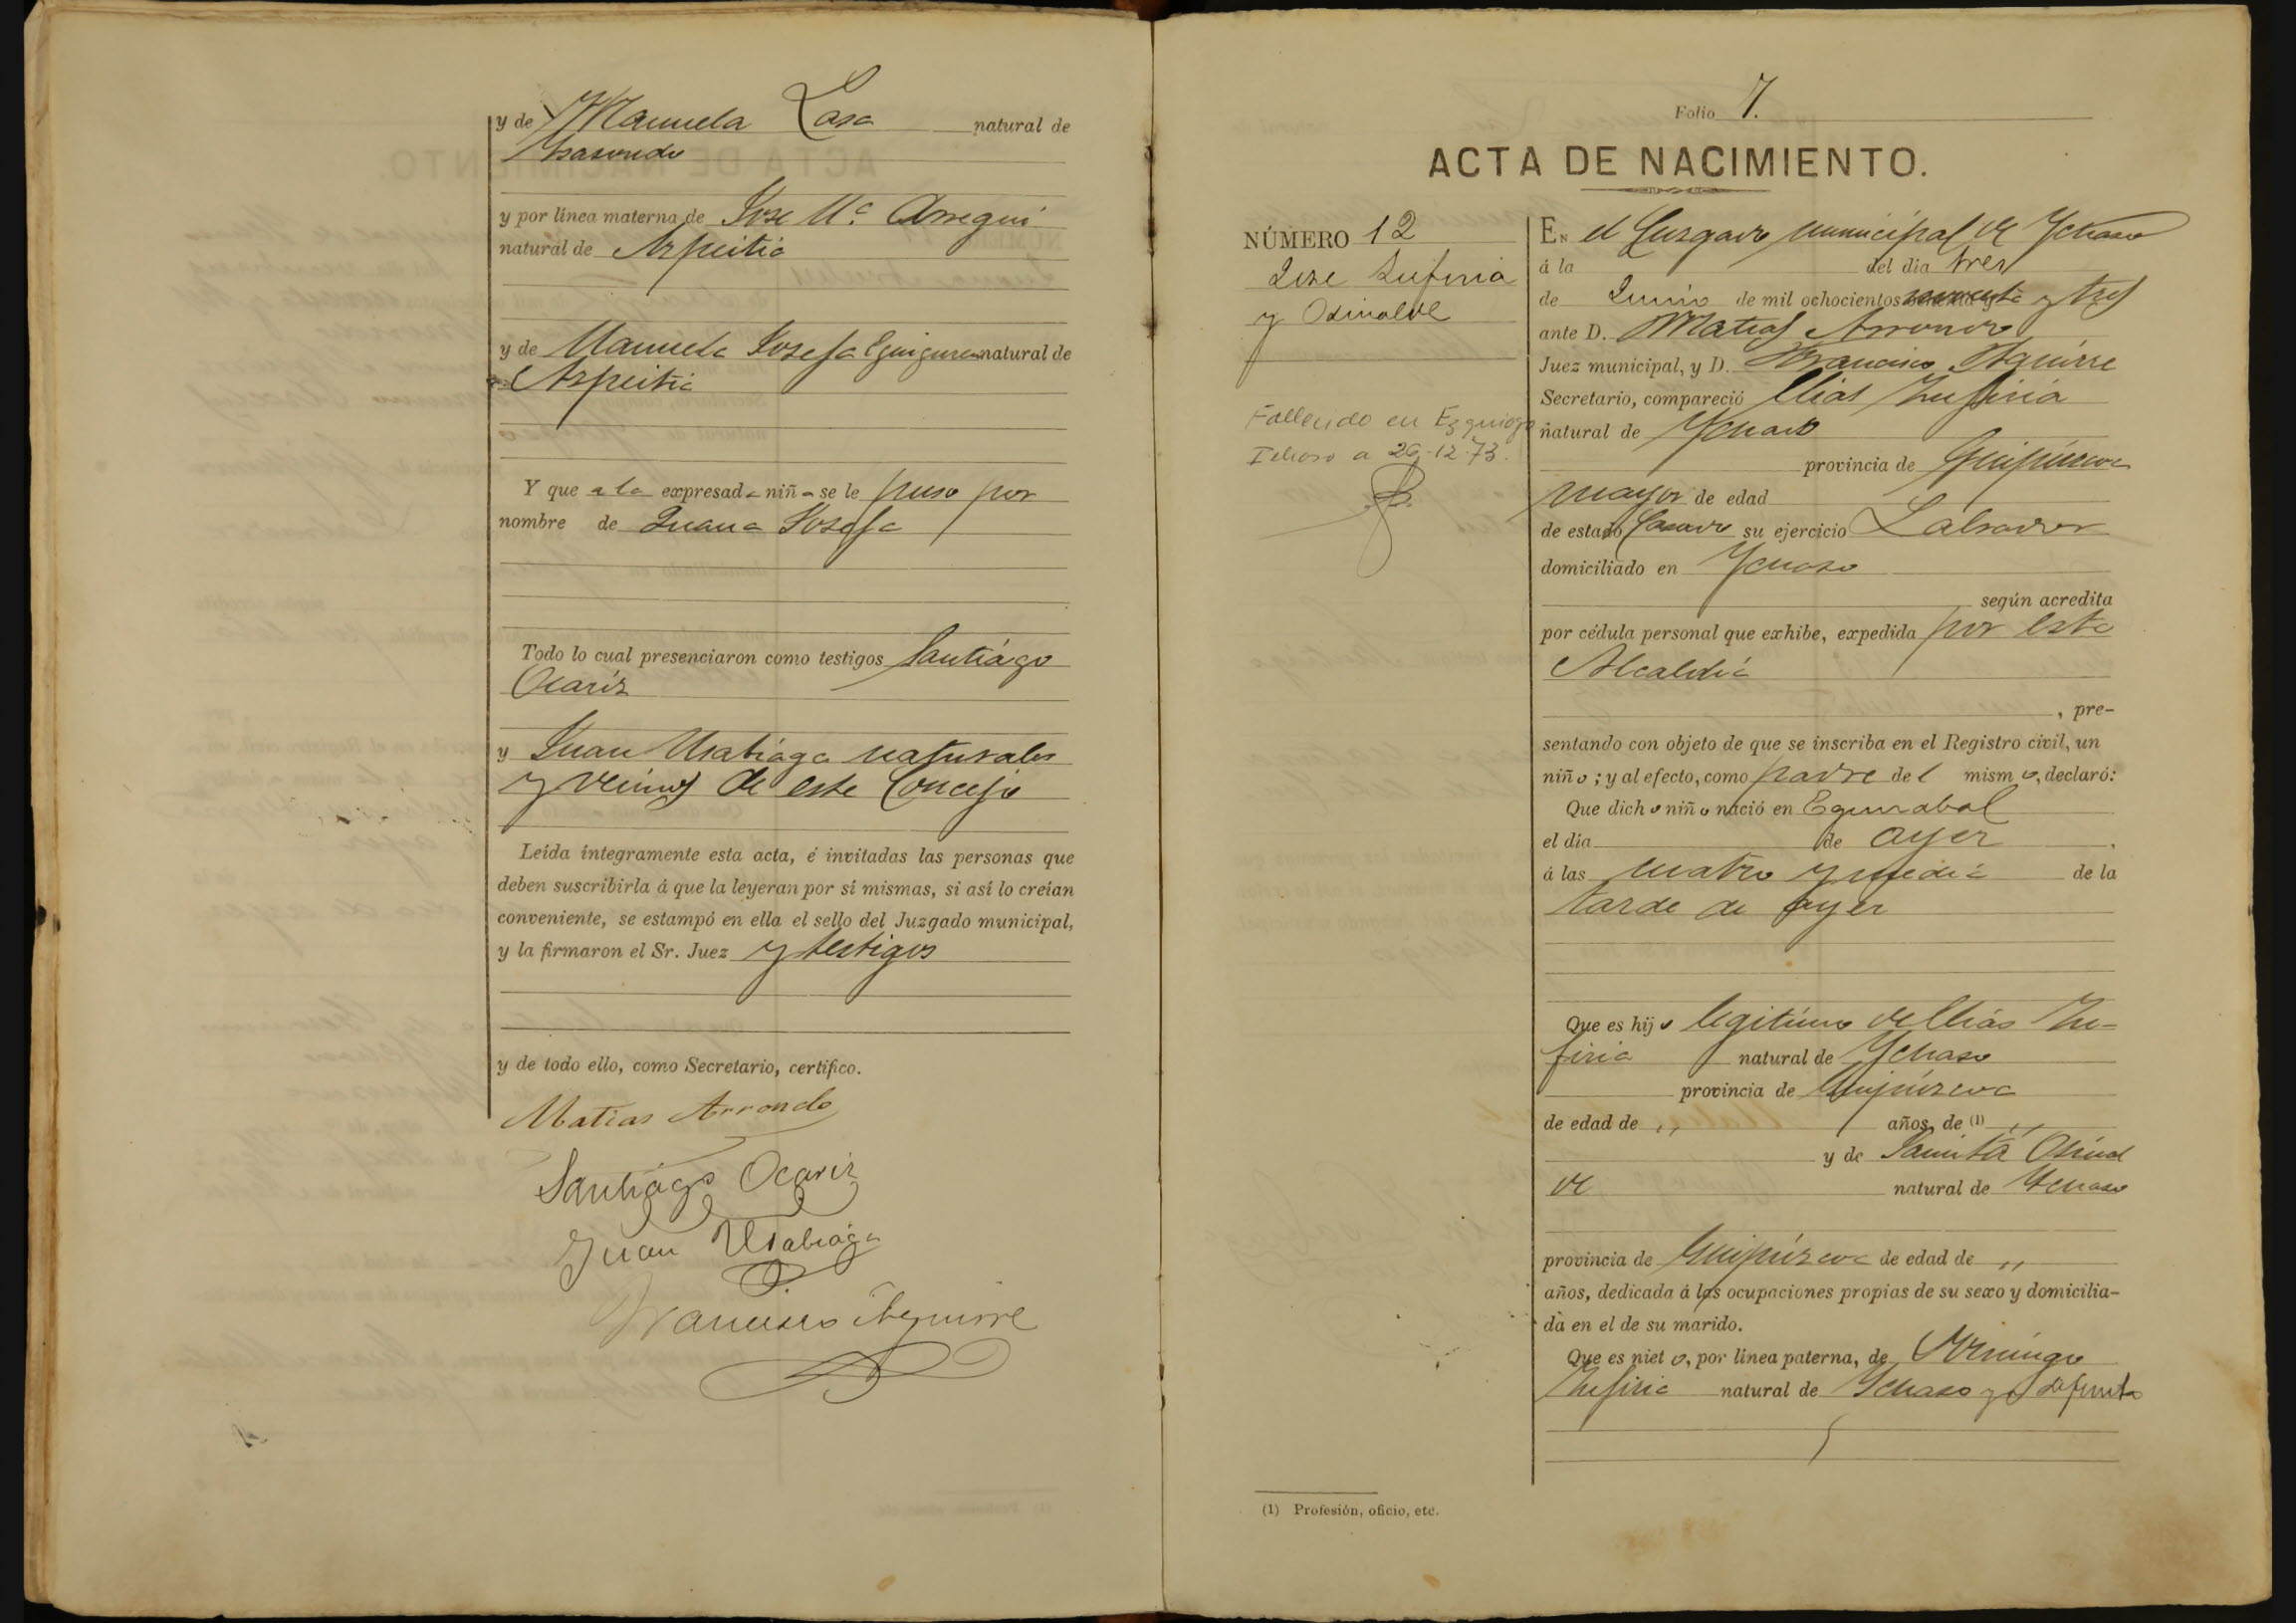 y de Manuela Lasa natural de
y por línea materna de Jose Mª Arregui
natural de Azpeitia
y de Manuela Josefa Eguiguren natural de
Azpeitia
Y que a la expresada niña se le puso por
nombre de Juana Josefa
Todo lo cual presenciaron como testigos Santiágo
Ocaríz
y Juan Usabiaga naturales
y vecinos de este Concejo
Leída íntegramente esta acta, é invitadas las personas que
deben suscribirla á que la leyeran por sí mismas, si así lo creían
conveniente, se estampó en ella el sello del Juzgado municipal,
y la firmaron el Sr. Juez y testigos
y de todo ello, como Secretario, certifico.
Matias Arrondo
Santiágo Ocariz
Juan Usabiága
Francisco Aguirre
Folio 7.
ACTA DE NACIMIENTO.
NÚMERO 12
Jose Zufiria
y Osinalde
Fallecido en Ezquioga
Ichaso a 26-12-73.
EN el Juzgado municipal de Ychaso
á la del dia tres
de Junio de mil ochocientos noventa y tres
ante D. Matias Arrondo
Juez municipal, y D. Francisco Aguirre
Secretario, compareció Elias Zufiria
natural de Ychaso
provincia de Guipúzcoa
mayor de edad
de estado Casado su ejercicio Labrador
domiciliado en Ychaso
según acredita
por cédula personal que exhibe, expedida por esta
Alcaldía
, pre-
sentando con objeto de que se inscriba en el Registro civil, un
niño; y al efecto, como padre del mismo, declaró:
Que dicho niño nació en
el día de ayer
á las cuatro y media de la
tarde de ayer
Que es hijo legitimo de Elias Zu-
firia natural de Ychaso
provincia de Guipúzcoa
de edad de ,, años, de (1) ,,
y de Osinal
de natural de Ychaso
provincia de Guipúzcoa de edad de ,,
años, dedicada á las ocupaciones propias de su sexo y domicilia-
da en el de su marido.
Que es nieto, por línea paterna, de Domingo
Zufiria natural de Ychaso y difunto
(1) Profesión, oficio, etc.